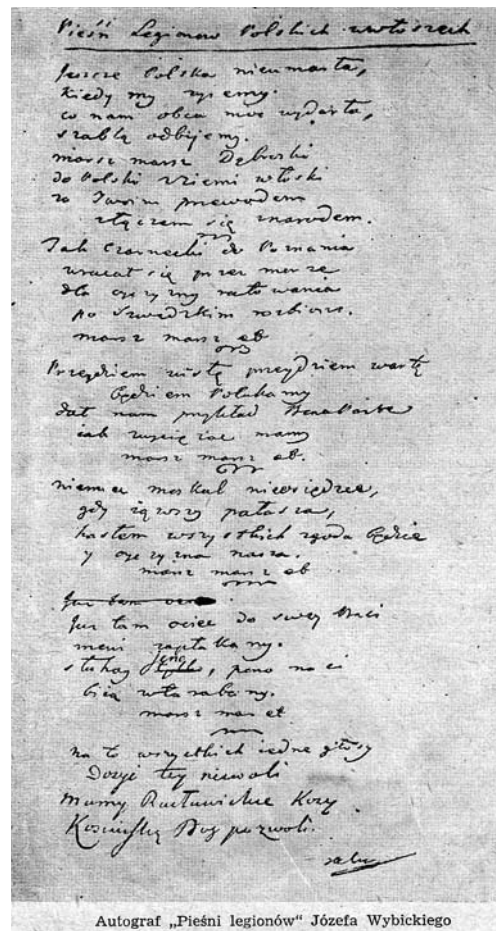 Pieśń Legionow Polskich we włoszech
Jeszcze Polska nieumarła,
kiedy my żyiemy.
co nam obca moc wydarła,
szablą odbijemy.
marsz marsz Dąbroski
do Polski z ziemi włoski
za Twoim przewodem
złączem się znarodem.
Jak Czarnecki do Poznania
wracał się przez morze
dla oyczyzny ratowania
po szwedzkim rozbiorze.
marsz marsz etc
Przeydziem wisłę przeydziem wartę
będziem Polakamy
dał nam przykład Bonaparte
iak zwyciężać mamy
marsz marsz etc.
niemiec moskal nieosiędzie,
gdy iąwszy pałasza,
hasłem wszystkich zgoda będzie
y oyczyzna nasza.
marsz marsz etc
Już tam ociec
Już tam ociec do swey Basi
mówi zapłakany.
słuchay jeno, pono nasi
biią w tarabany.
marsz mar etc
na to wszystkich iedne głosy
Dosyć tey niewoli
mamy Racławickie Kosy
Kosciuszkę Bog pozwoli.
Autograf „Pieśni legionów“ Józefa Wybickiego